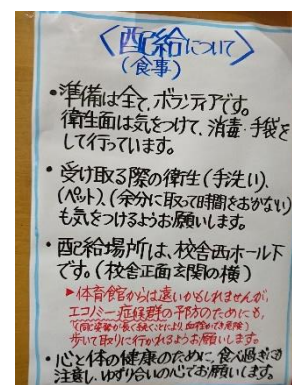 〈配給について〉
(食事)
・準備は全て、ボランティアです。
衛生面は気をつけて、消毒・手袋を
して行っています。
・受け取る際の衛生(手洗い)、
(ペット)、(余分に取って時間をおかない)
も気をつけるようお願いします。
・配給場所は、校舎西ホール下
です。(校舎正面玄関の横)
▶体育館からは遠いかもしれませんが、
エコノミー症候群の予防のためにも、
(同じ姿勢が長く続くことにより血栓ができ危険)
歩いて取りに行かれるようお願いします。
・心と体の健康のために、食べ過ぎに
注意し、ゆずり合いの心でお願いします。